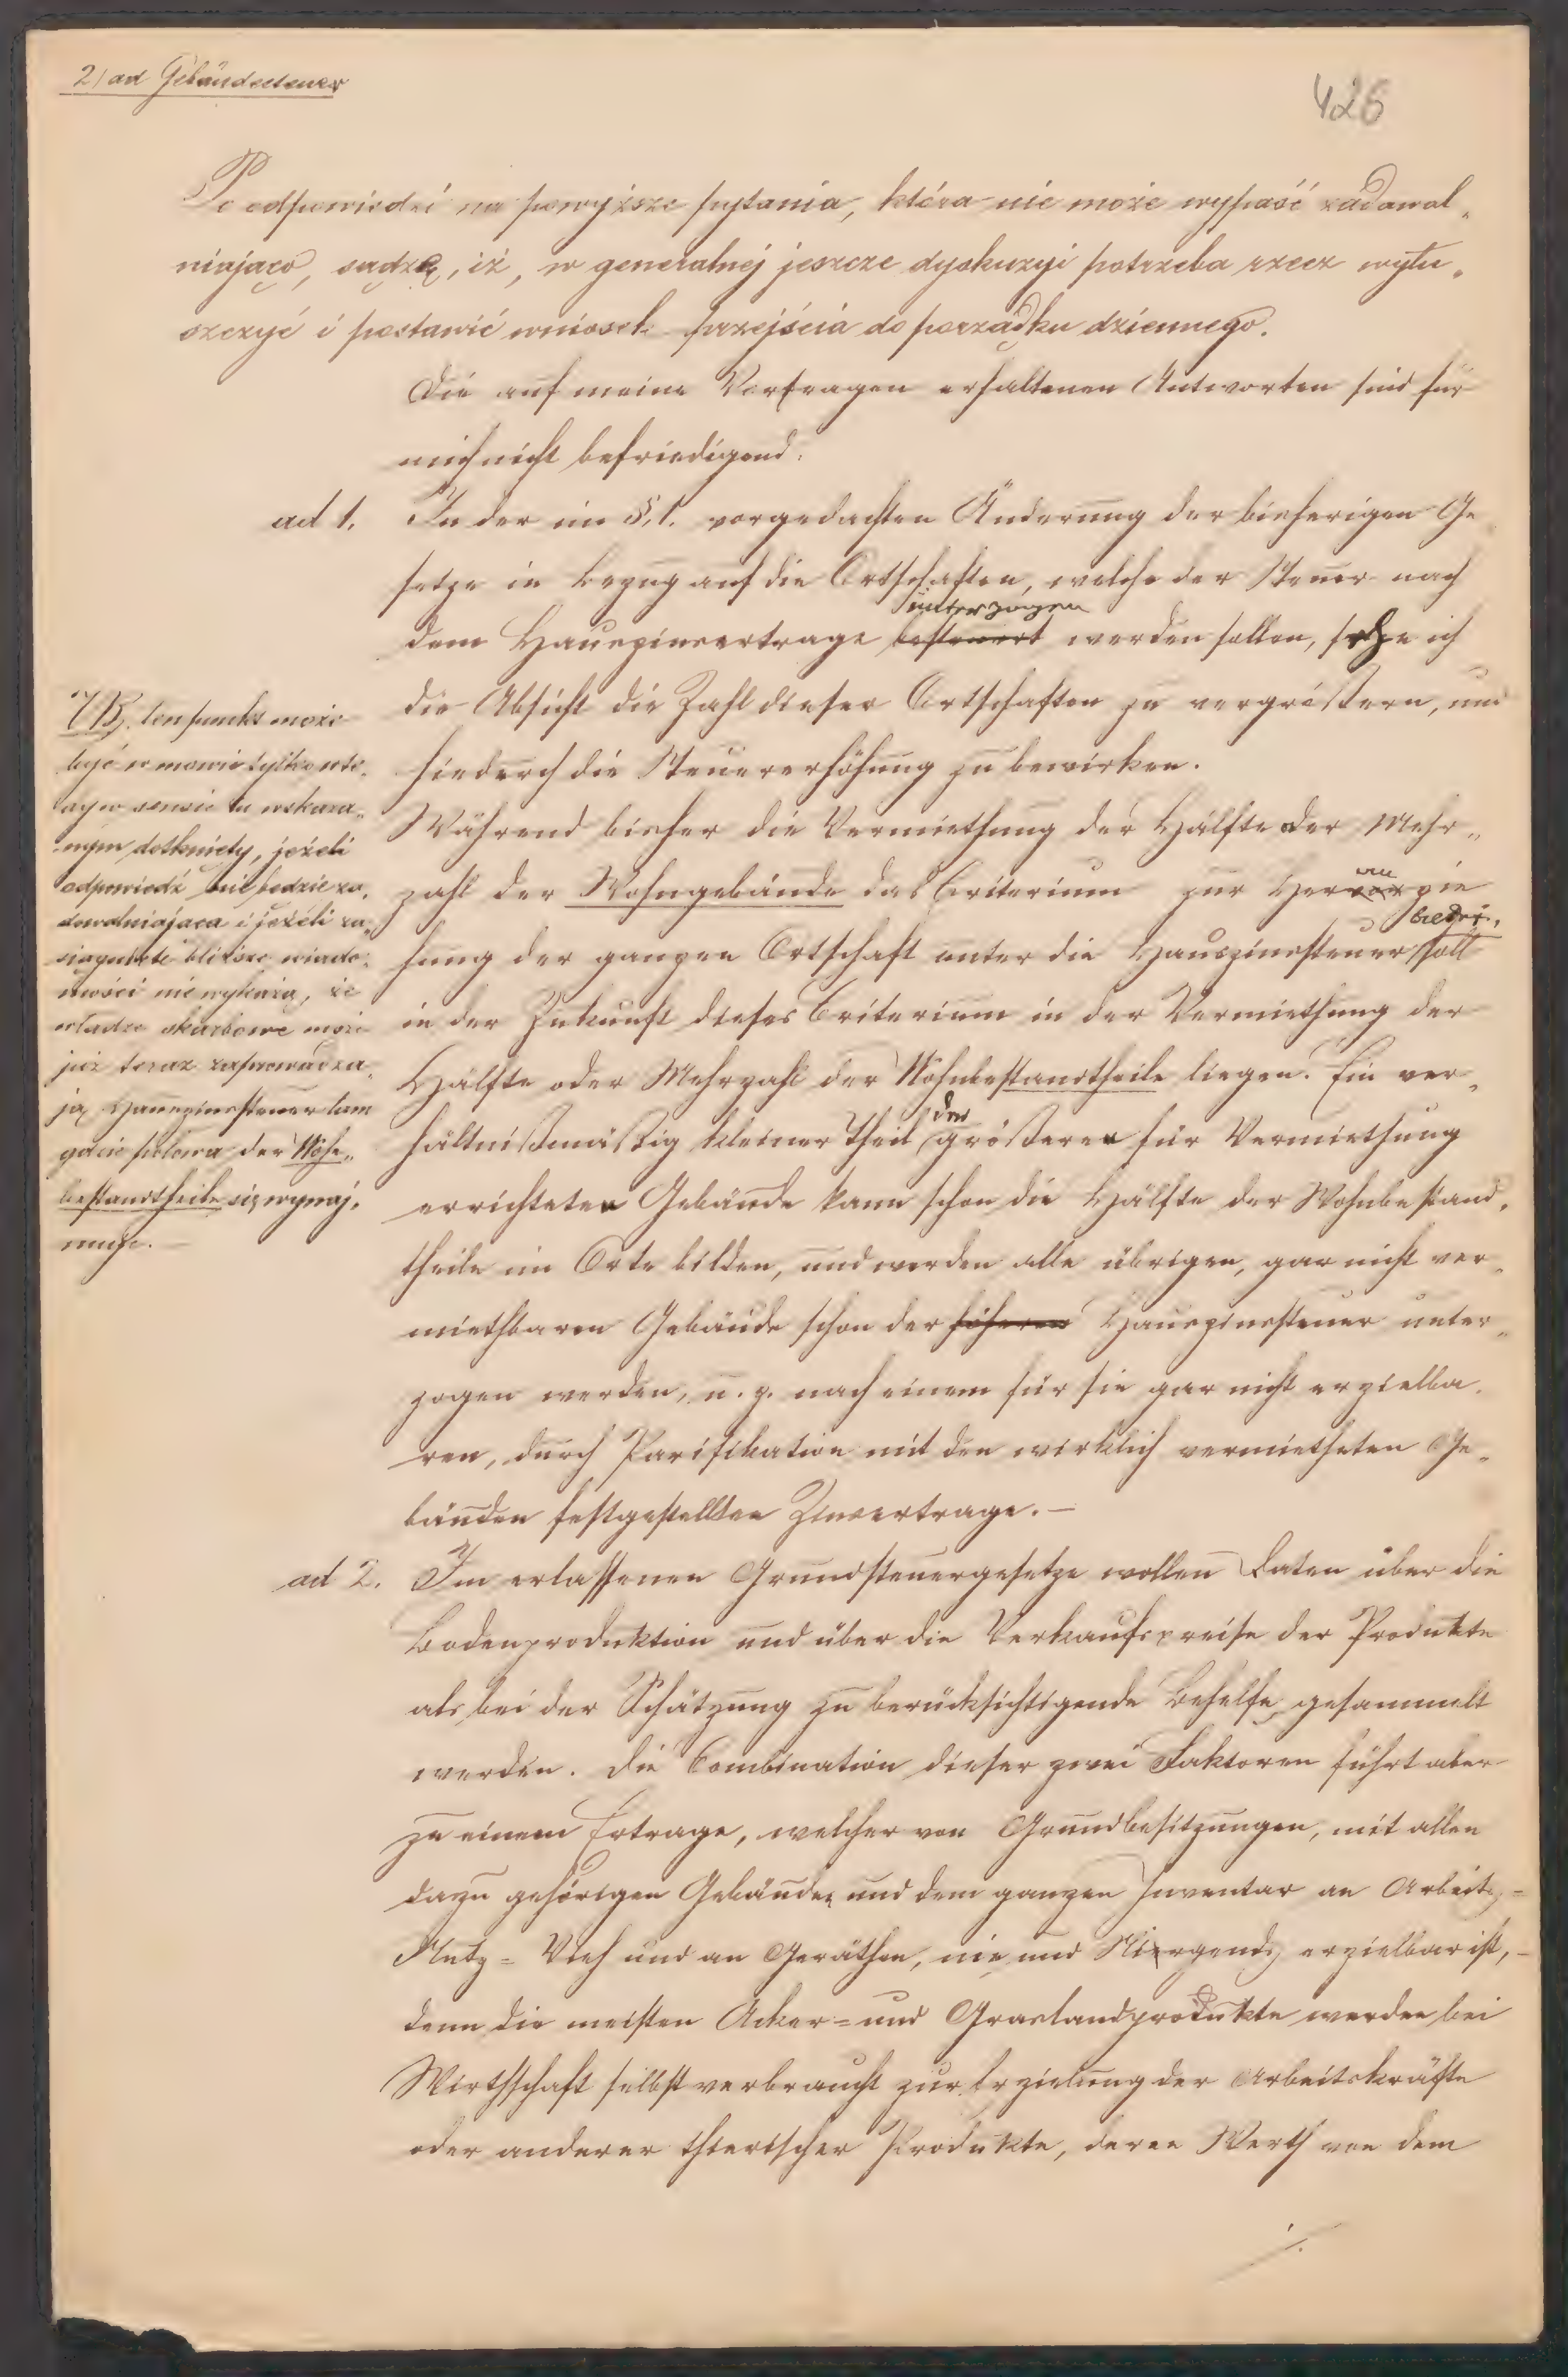 2) ad Gebäudesteuer
426
Po odpowiedzi na powyższe pytania, która nie może wypaść zadawal„
niająco, sądzę, iż, w generalnej jeszcze dyskuzyi potrzeba rzecz wytu„
szczyć i postawić wniosek przejścia do porządku dziennego.
Die auf meine Vorfragen erhaltenen Antworten sind für
mich nicht befriedigend.
ad 1. In der im §. 1. vorgedachten Änderung der bisherigen Ge
setze in Bezug auf die Ortschaften, welche der Steuer nach
unterzogen
dem Hauszinsertrage besteuert werden sollen, sehe ich
die Absicht die Zahl dieser Ortschaften zu vergrößern, und
hiedurch die Steuererhöhung zu bewirken.
Während bisher die Vermiethung der Hälfte oder Mehr„
zahl der Wohngebäude das Criterium zur Heranzie
bildet,
hung der ganzen Ortschaft unter die Hauszinssteuer soll
in der Zukunft dieses Criterium in der Vermiethung der
Hälfte oder Mehrzahl der Wohnbestandtheile liegen. Ein ver„
der
hältnißmäßig kleiner Theil größeren für Vermiethung
errichteten Gebäude kann schon die Hälfte der Wohnbestand„
theile im Orte bilden, und werden alle übrigen, gar nicht ver„
miethbaren Gebäude schon der höheren Hauszinssteuer unter„
zogen werden, u. z. nach einem für sie gar nicht erzielba„
ren, durch Parifikation mit den wirklich vermietheten Ge„
bäuden festgestellten Zinsertrage. —
NB. ten punkt może
być w mowie tylko wte„
dy w sensie tu wskaza„
nym dotknięty, jeżeli
odpowiedź nie będzie za„
dowalniająca i jeżeli za„
siągnięte bliższe wiado„
mości nie wykażą, że
władze skarbowe może
już teraz zaprowadza„
ją Hauszinssteuer tam
gdzie połowa der Wohn„
bestandtheile się wynaj„
muje. —
ad 2. Im erlassenen Grundsteuergesetze wollen Daten über die
Bodenproduktion und über die Verkaufspreise der Produkte
als bei der Schätzung zu berücksichtigende Behelfe, gesammelt
werden. Die Combination dieser zwei Faktoren führt aber
zu einem Ertrage, welcher von Grundbesitzungen, mit allen
dazu gehörigen Gebäuden und dem ganzen Inventar an Arbeits=
Nutz= Vieh und an Geräthen, nie und Nirgends erzielbar ist, —
denn die meisten Acker= und Graslandprodukte werden bei
Wirthschaft selbst verbraucht zur Erzielung der Arbeitskräfte
oder anderer thierischer Produkte, deren Werth von dem
./.